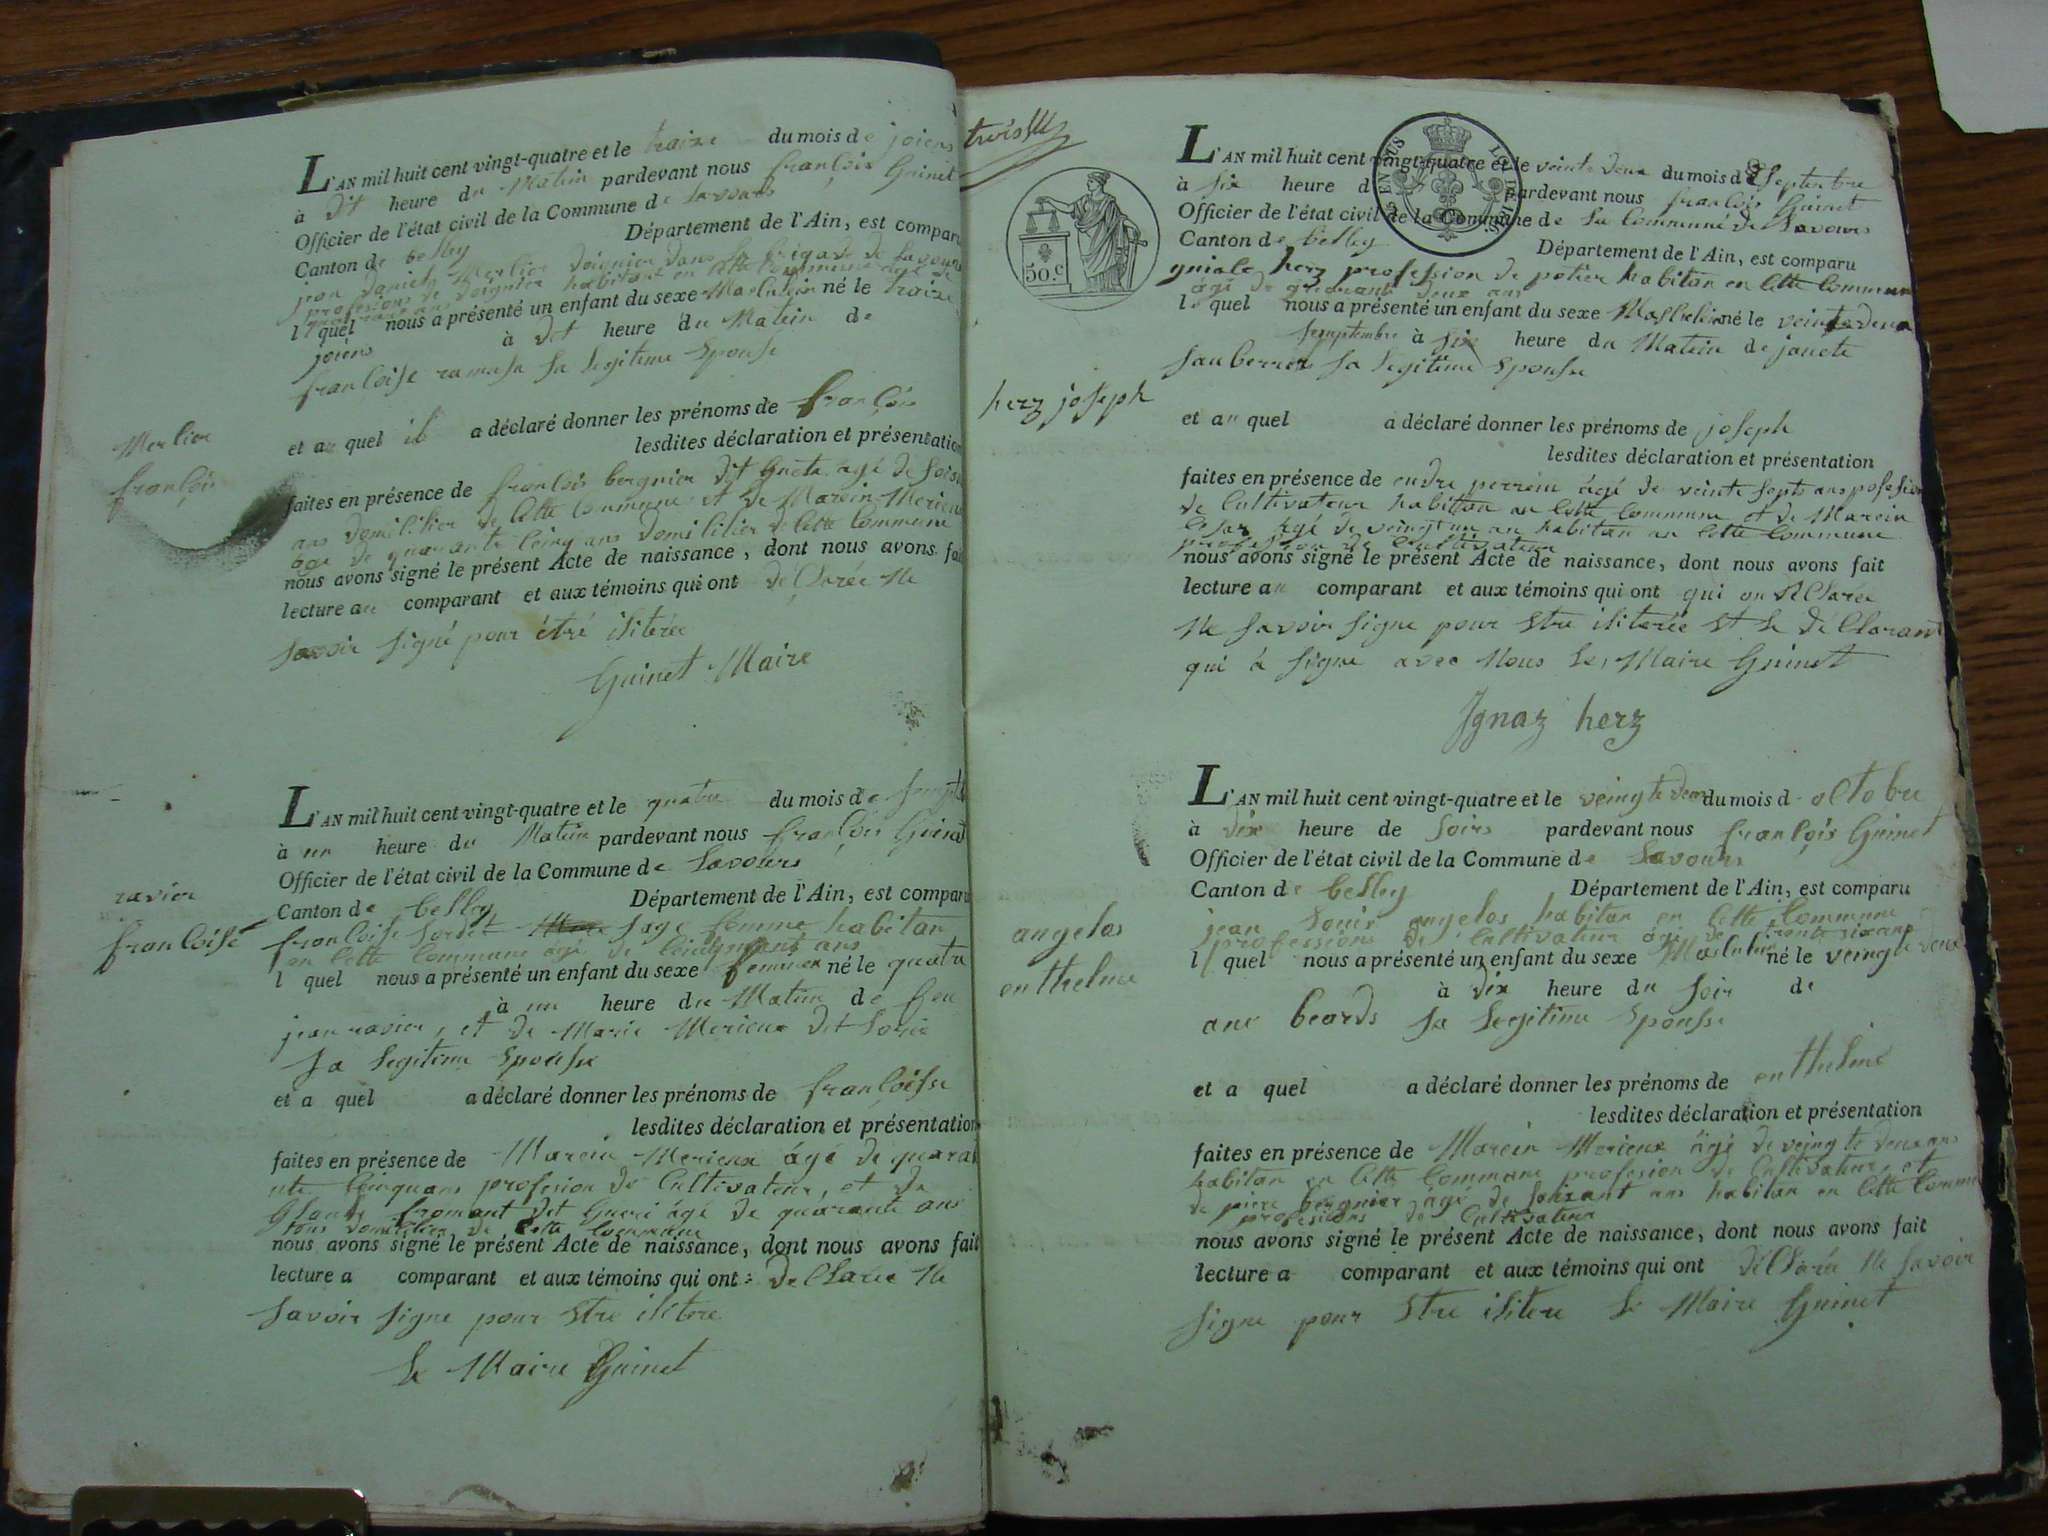 L'AN mil huit cent vingt-quatre et le traize du mois de joiens
à dit heure du Matin pardevant nous françois Guinet
Officier de l'état civil de la Commune de Savours
Canton de belley Département de l'Ain, est comparu
jean Merlier doignier dans la brigade de Savours
profesions de doignier habitant en cette Commune âgé de
l quel nous a présenté un enfant du sexe Masculin né le traize
joiens à dit heure du Matin de
françoise ramasa sa legitime Epouse
Merlier
françois
et au quel il a déclaré donner les prénoms de françois
lesdites déclaration et présentation
faites en présence de françois bergnier dit Gneta âgé de
ans domicilier de Cette Commune et de Marein Merieux
âgé de quarante Cinq ans domicilier de Cette Commune
nous avons signé le présent Acte de naissance, dont nous avons fait
lecture au comparant et aux témoins qui ont déClarée Ne
Savoir signé pour être iliterée
Guinet Maire
L'AN mil huit cent vingt-quatre et le quatre du mois de
à un heure du Matin pardevant nous françois Guinet
Officier de l'état civil de la Commune de Savours
Canton de belley Département de l'Ain, est comparu
ravier
françoise
françoise Sordet Sage femme habitan
en Cette Commune âgé de Cinquante ans
l quel nous a présenté un enfant du sexe né le quatre
à un heure du Matin de feu
jean ravier, et de Marie Merieux dit
sa legitime Epouse
et a quel a déclaré donner les prénoms de françoise
lesdites déclaration et présentation
faites en présence de Marein Merieux âgé de quara
nte Cinq ans profesion de Cultivateur, et de
Glaude fromont dit âgé de quarante ans
tous domicilier de Cette Commune
nous avons signé le présent Acte de naissance, dont nous avons fait
lecture a comparant et aux témoins qui ont : deClarée Ne
Savoir Signe pour Etre ilitere
Le Maire Guinet
trois
50. c
L'AN mil huit cent vingt-quatre et le veinte deux du mois d Septenbre
à six heure d pardevant nous françois Guinet
Officier de l'état civil de la Commune de la Commune de Savours
Canton de belley Département de l'Ain, est comparu
gniale herz profession de potier habitan en Cette Commune
âgé de quarante deux ans
l quel nous a présenté un enfant du sexe Masculin né le veinte deux
Semptembre à six heure du Matin de janete
Sauberrer sa legitime Epouse
herz joseph
et au quel a déclaré donner les prénoms de joseph
lesdites déclaration et présentation
faites en présence de endre perrein âgé de veinte septs ans pofesion
de Cultivateur habittan en Cette Commune et de Marein
âgé de veingt un an habitan en Cette Commune
profession de Cultivateur
nous avons signé le présent Acte de naissance, dont nous avons fait
lecture au comparant et aux témoins qui ont qui on déClarée
Ne Savoir Signe pour Etre iliterée et le déClarant
qui à Signe avec Nous le, Maire Guinet
Ignaz herz
L'AN mil huit cent vingt-quatre et le veingte deux du mois d octobre
à dix heure de Soirs pardevant nous françois Guinet
Officier de l'état civil de la Commune de Savours
Canton de belley Département de l'Ain, est comparu
angelos
enthelme
jean Louis angelos habitan en Cette Commune
professions de Cultivateur âgé de trente six ans
l quel nous a présenté un enfant du sexe Masculin né le veingte deux
à dix heure du soir de
ane beards sa legitime Epouse
et a quel a déclaré donner les prénoms de enthelme
lesdites déclaration et présentation
faites en présence de Marein Merieux âgé de veingte deux ans
habitan en Cette Commune profesion de Cultivateur, et
de piere bergnier âgé de ans habitan en Cette Commu
profesions de Cultivateur
nous avons signé le présent Acte de naissance, dont nous avons fait
lecture a comparant et aux témoins qui ont déClaré Ne Savoir
Signe pour Etre ilitere le Maire Guinet